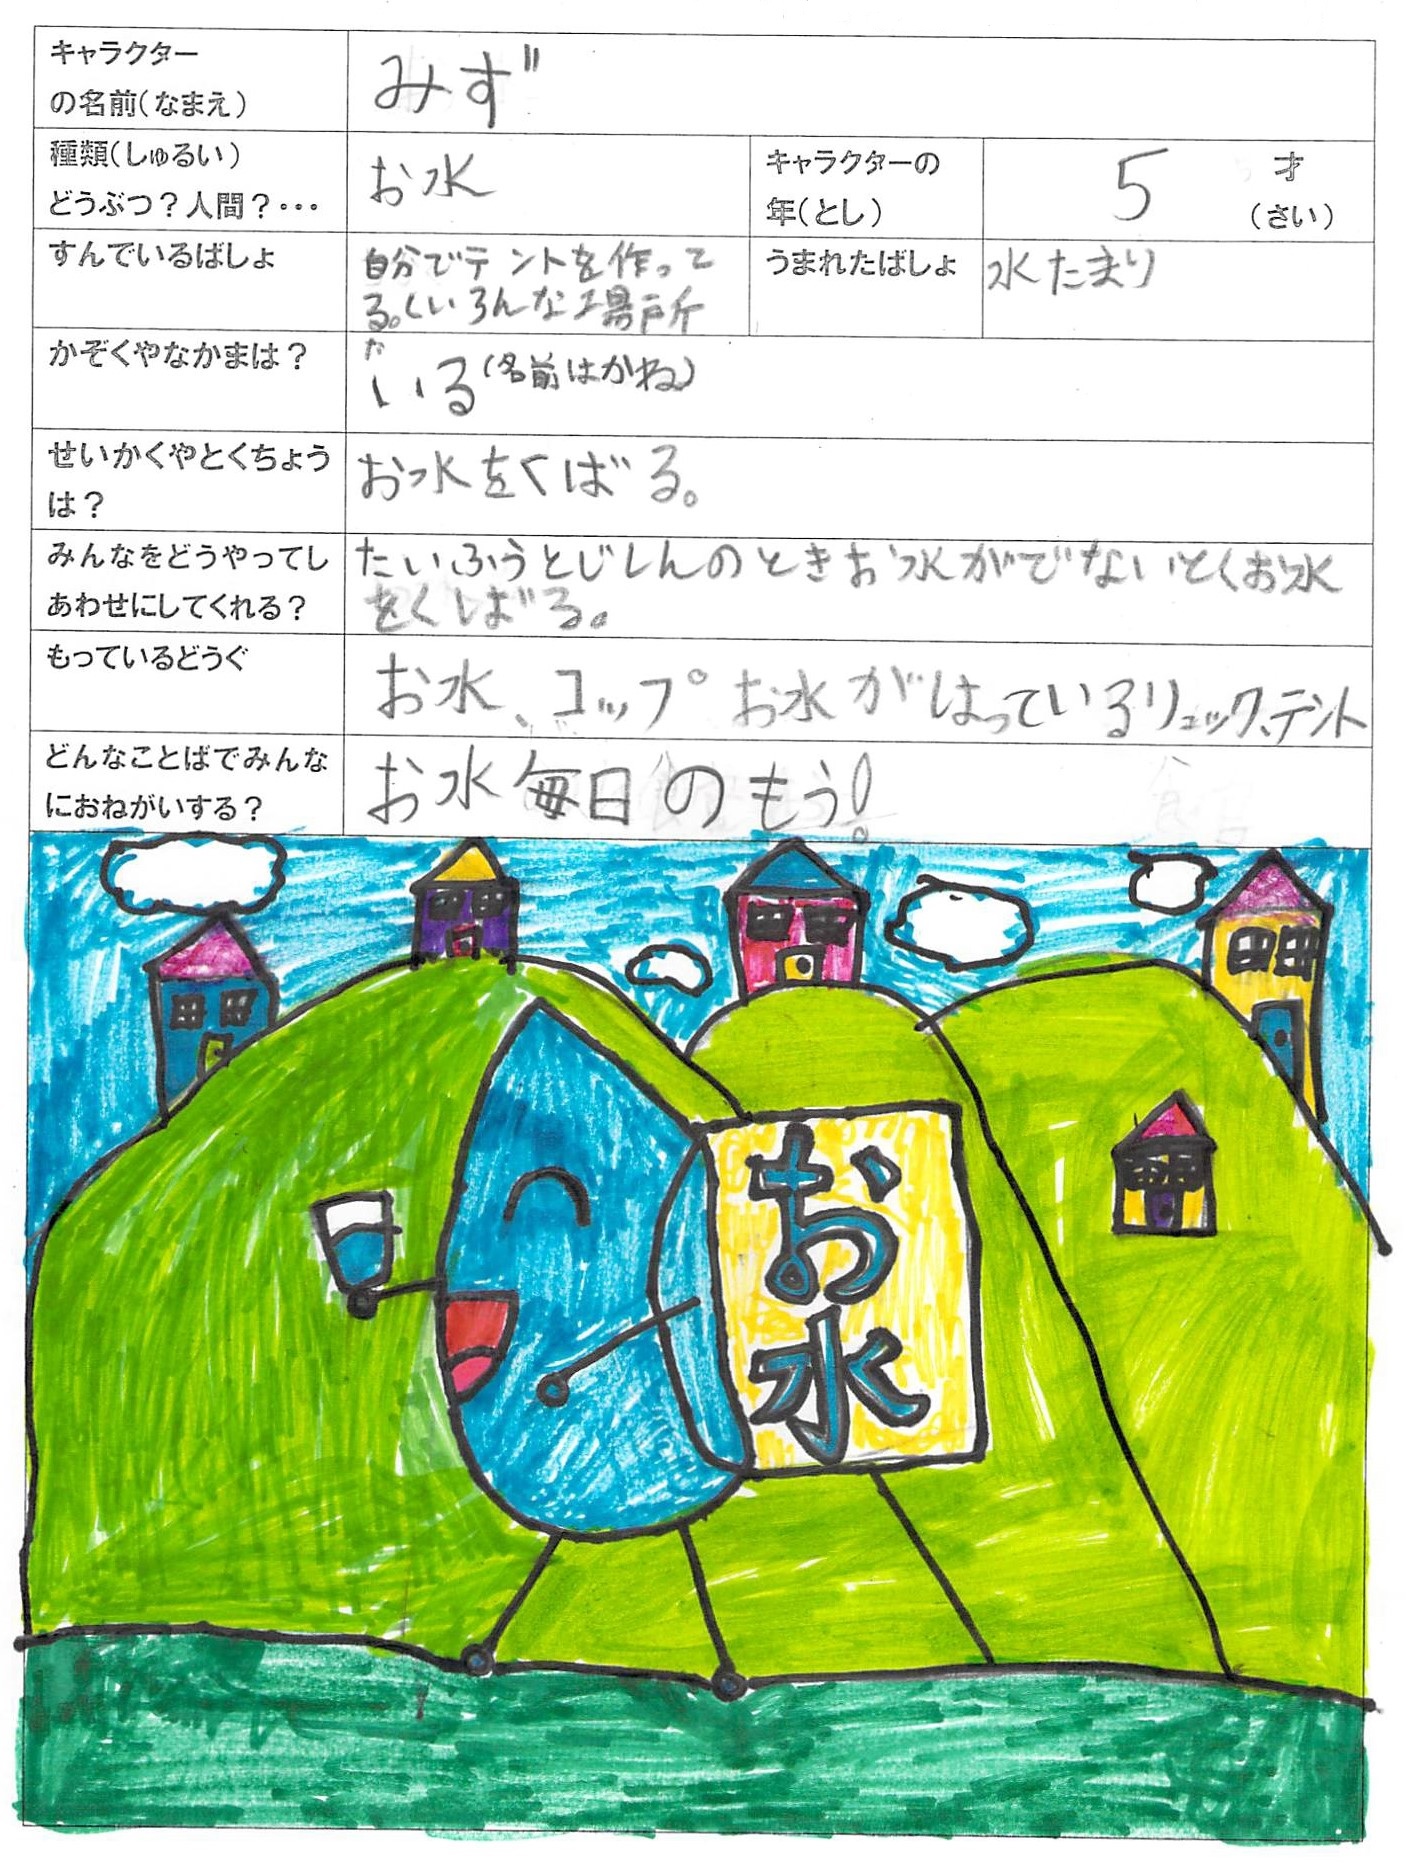 キャラクター
の名前(なまえ)
みず
種類(しゅるい)
どうぶつ?人間?・・・
お水
キャラクターの
年(とし)
5
才
(さい)
すんでいるばしょ
自分でテントを作って
る。(いろんな場所
だ
うまれたばしょ
水たまり
かぞくやなかまは?
いる(名前はかね)
せいかくやとくちょう
は?
お水をくばる。
みんなをどうやってし
あわせにしてくれる?
たいふうとじしんのときお水がでないとくお水
をくばる。
もっているどうぐ
お水、コップ お水がはっているリュック、テント
どんなことばでみんな
におねがいする?
お水毎日のもう!
お
水